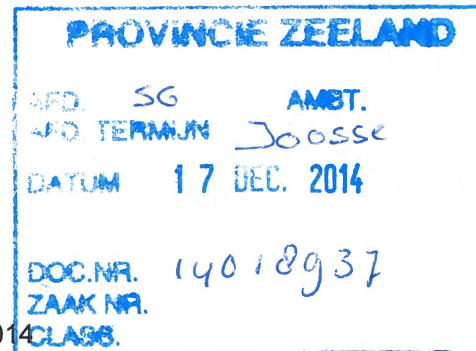 PROVINCIE ZEELAND
AFD. SG AMBT.
AFD. TERMIJN Joosse
DATUM 17 DEC. 2014
DOC.NR. 14018937
ZAAK NR.
014
CLASS.